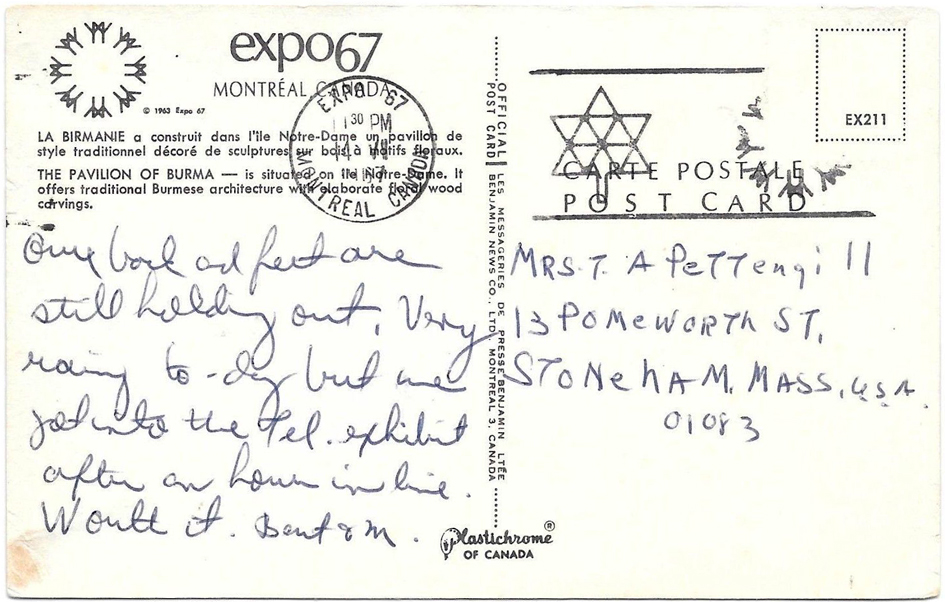 expo67
MONTRÉAL, CANADA
© 1963 Expo 67
LA BIRMANIE a construit dans l'île Notre-Dame un pavillon de
style traditionnel décoré de sculptures sur bois à motifs floraux.
THE PAVILION OF BURMA — is situated on île Notre-Dame. It
offers traditional Burmese architecture with elaborate floral wood
carvings.
EXPO 67
11 30 PM
14 VII
MONTREAL CANADA
Our back ad feet are
still holding out. Very
rainy to-day but we
got into the Tel. exhibit
after an hour in line.
Worth it. & M.
OFFICIAL POST CARD
LES MESSAGERIES DE PRESSE BENJAMIN LTÉE
BENJAMIN NEWS CO., LTD. MONTREAL 3, CANADA
EX211
CARTE POSTALE
POST CARD
MRS. T. A PeTTengill
13 POMeWORTh ST,
SToNehAM. MASS, U.S.A.
01083
Plastichrome®
OF CANADA